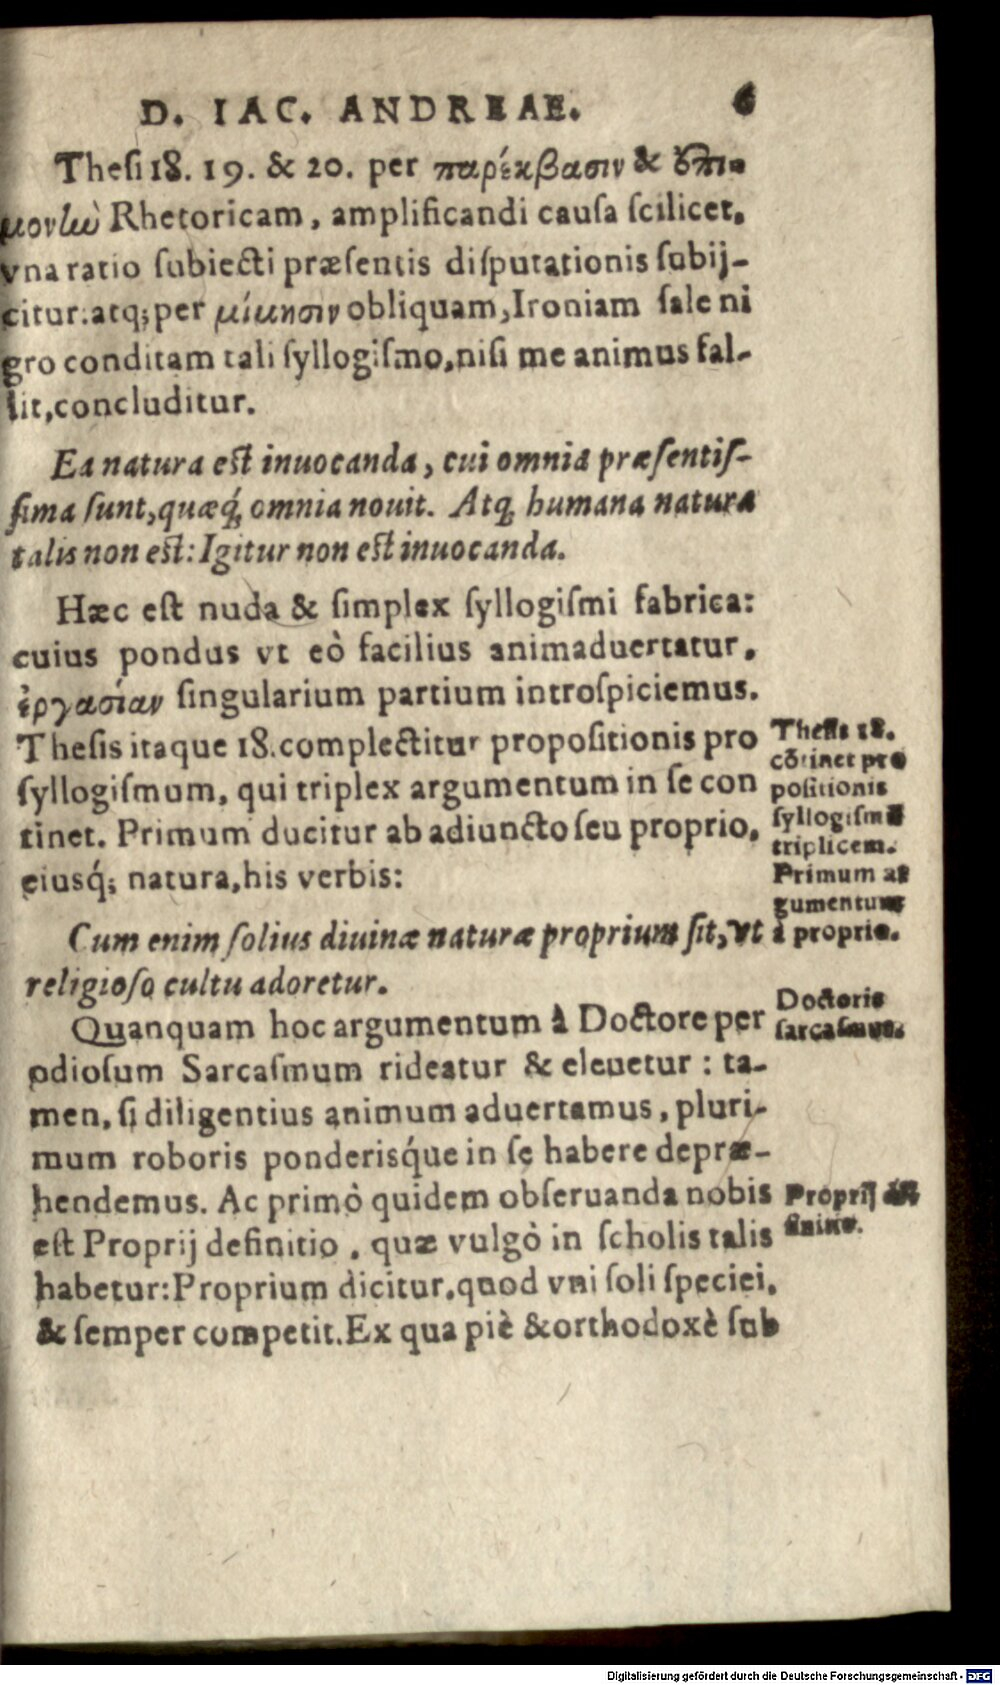 D. IAC. ANDREAE. 6
Thesi 18. 19. & 20. per παρέκβασιν & ἐπι-
μονὴν Rhetoricam, amplificandi causa scilicet,
vna ratio subiecti præsentis disputationis subij-
citur: atq; per μίμησιν obliquam, Ironiam sale ni
gro conditam tali syllogismo, nisi me animus fal-
lit, concluditur.
Ea natura est inuocanda, cui omnia præsentis-
sima sunt, quæq́; omnia nouit. Atq; humana natura
talis non est: Igitur non est inuocanda.
Hæc est nuda & simplex syllogismi fabrica:
cuius pondus vt eò facilius animaduertatur,
ἐργασίαν singularium partium introspiciemus.
Thesis itaque 18. complectitur propositionis pro
syllogismum, qui triplex argumentum in se con
tinet. Primum ducitur ab adiuncto seu proprio,
eiusq́; natura, his verbis:
Thesis 18.
cōtinet pro
positionis
syllogismū
triplicem.
Primum ar
gumentum
à proprio.
Cum enim solius diuinæ naturæ proprium sit, vt
religioso cultu adoretur.
Quanquam hoc argumentum à Doctore per
odiosum Sarcasmum rideatur & eleuetur: ta-
men, si diligentius animum aduertamus, pluri-
mum roboris ponderisq́ue in se habere depræ-
hendemus. Ac primò quidem obseruanda nobis
est Proprij definitio, quæ vulgò in scholis talis
habetur: Proprium dicitur, quod vni soli speciei,
& semper competit. Ex qua piè & orthodoxè sub
Doctoris
sarcasmus.
Proprij de
finitio.
Digitalisierung gefördert durch die Deutsche Forschungsgemeinschaft - DFG